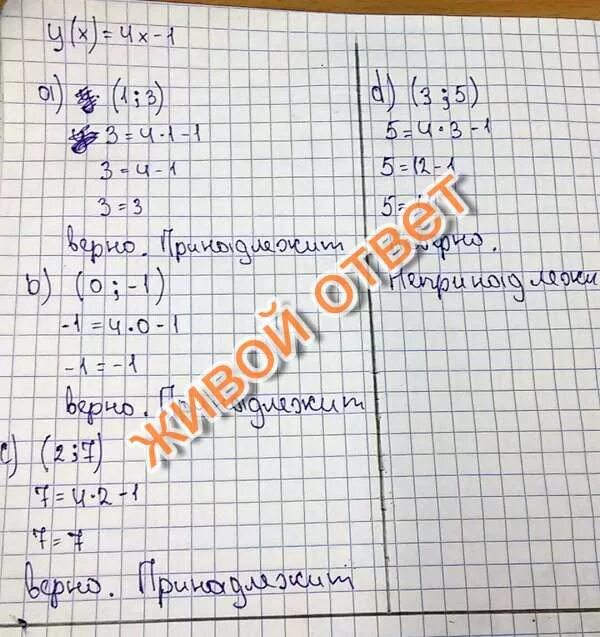 y(x) = 4x - 1
a) (1;3)
3 = 4·1-1
3 = 4-1
3 = 3
верно. Принадлежит
b) (0;-1)
-1 = 4·0-1
-1 = -1
верно.
c) (2;7)
7 = 4·2-1
7 = 7
верно. Принадлежит
d) (3;5)
5 = 4·3-1
5 = 12-1
5 =
Непринадлежи
ЖИВОЙ ОТВЕТ